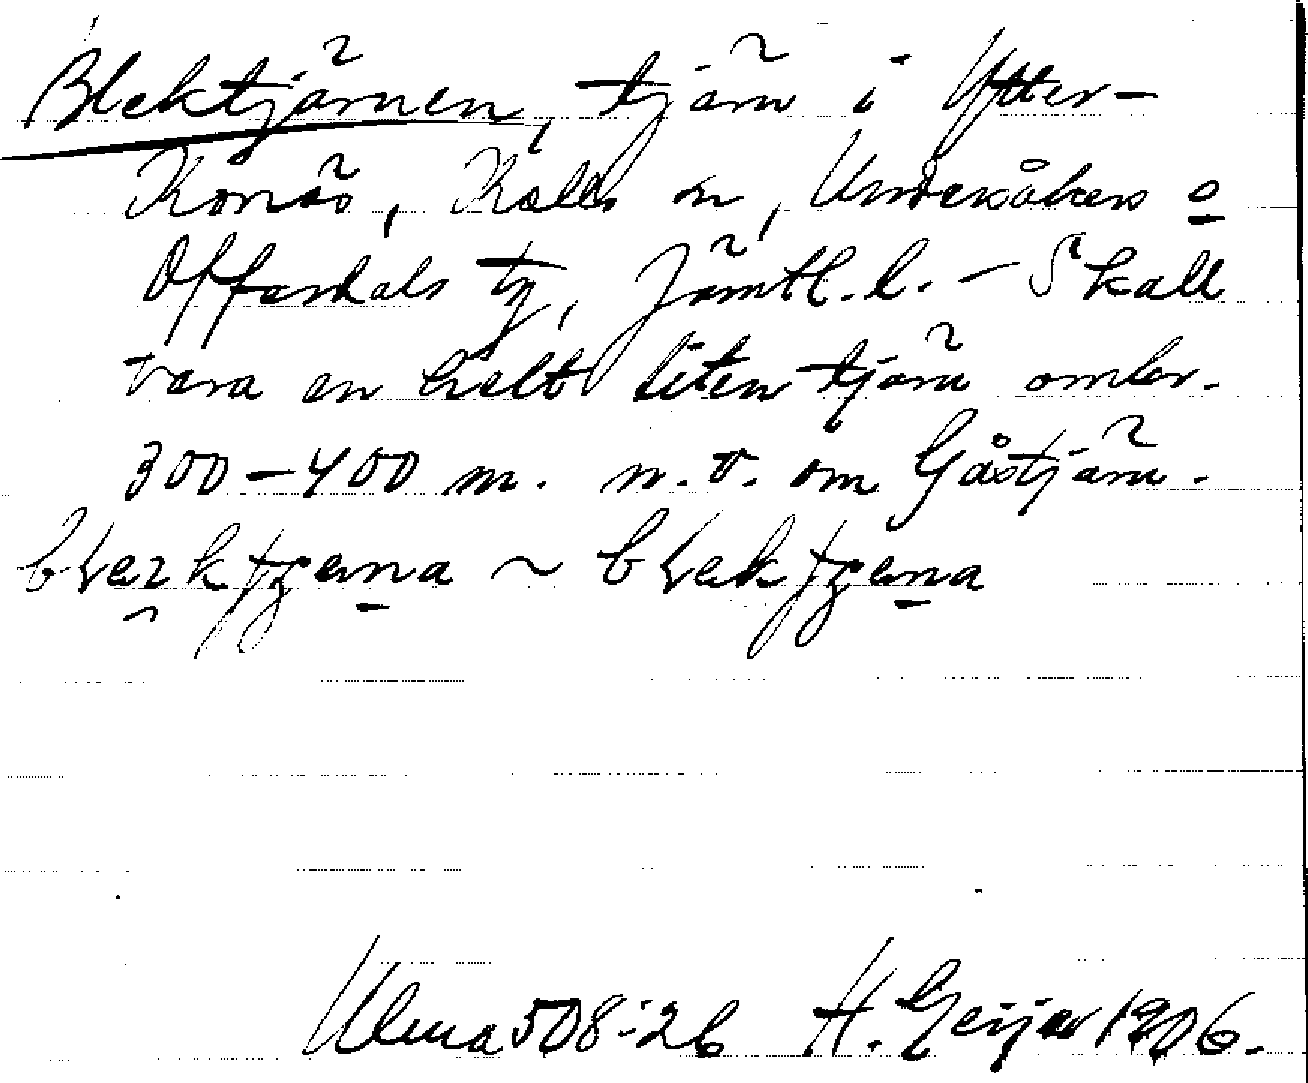 Blektjärnen, tjärn i Ytter-
Konäs, Kalls sn, Undersåkers o
Offerdals tg, Jämtl. l. – Skall
vara en helt liten tjärn omkr.
300–400 m. n.v. om Gåstjärn.
~
Ulma 508:26 H. Geijer 1906.